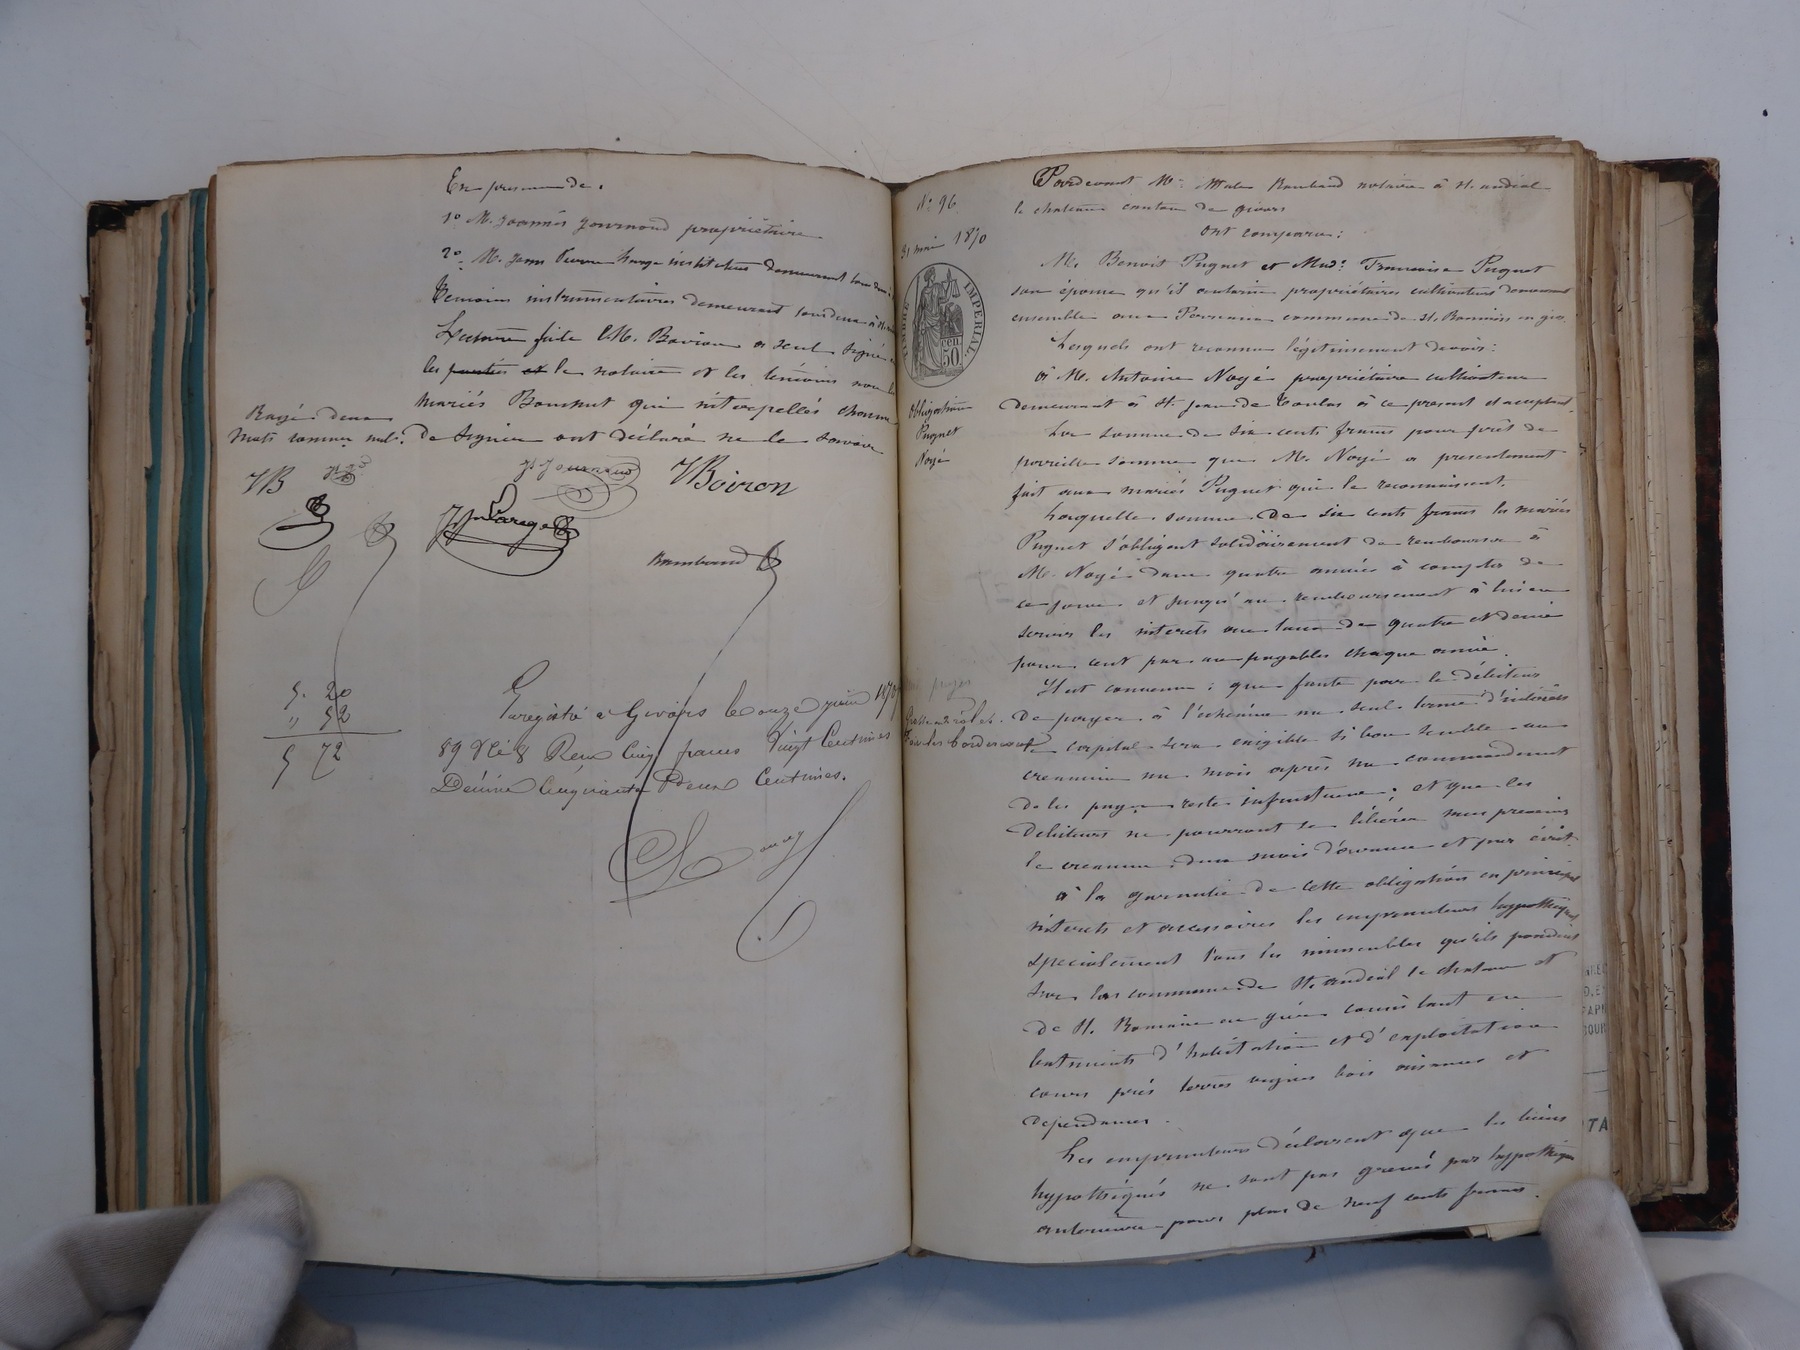 En presence de.
1º M. Joannès Journoud propriétaire
2º M. Jean Pierre Large instituteur demeurant tous deux
temoins instrumentaires demeurant tous deux à St
Lecture faite M. Boiron a seul signé
les parties et le notaire et les temoins non les
mariés Bonnut qui interpellés chacun
de signer ont déclaré ne le savoir
Rayé deux
mots comme nuls.
JB
J Journoud
JBoiron
JPLarge
Rambaud
5. 20
" 52
5 72
Enregistré à Givors le onze juin 1870
89 Vº C 8 Reçu Cinq francs Vingt Centimes
Décime Cinquante Deux Centimes.
Nº 96
31 mai 1870
TIMBRE IMPERIAL
50 cen
Obligation
Pugnet
Noyé
Pardevant Me Rambaud notaire à St. andéol
le chateau canton de givors
ont comparu:
M. Benoit Pugnet et Made Francoise Pugnet
son épouse qu'il autorise propriétaires cultivateurs demeurant
ensemble commune de St. Romain en gier
Lesquels ont reconnu légitimement devoir:
à M. Antoine Noyé propriétaire cultivateur
demeurant à St. Jean de Toulas à ce present et acceptant,
La somme de six cents francs pour prêt de
pareille somme que M. Noyé a presentement
fait aux mariés Puguet qui le reconnaissent.
Laquelle somme de six cents francs les mariés
Puguet s'obligent solidairement de rembourser à
M. Noyé dans quatre années à compter de
ce jour et jusqu'au remboursement à lui en
servir les interets au taux de quatre et demi
pour cent par an payables chaque année.
Il est convenu: que faute par le débiteur
de payer à l'echéance un seul terme d'intérêts
le capital sera exigible si bon semble au
creancier un mois après un commandement
de les payer resté infructueux; et que les
débiteurs ne pourront se libérer sans prevenir
le creancier deux mois d'avance et par écrit.
à la garantie de cette obligation en principal
interets et accessoires les emprunteurs hypothèquent
specialement tous les immeubles qu'ils possèdent
sur les communes de St. andéol le chateau et
de St. Romain en gier consistant en
batiments d'habitation et d'exploitation
cours prés terres vignes bois aisances et
dependances.
Les emprunteurs déclarent que les biens
hypothéqués ne sont pas grevés par hypothèque
anterieure pour plus de neuf cents francs.